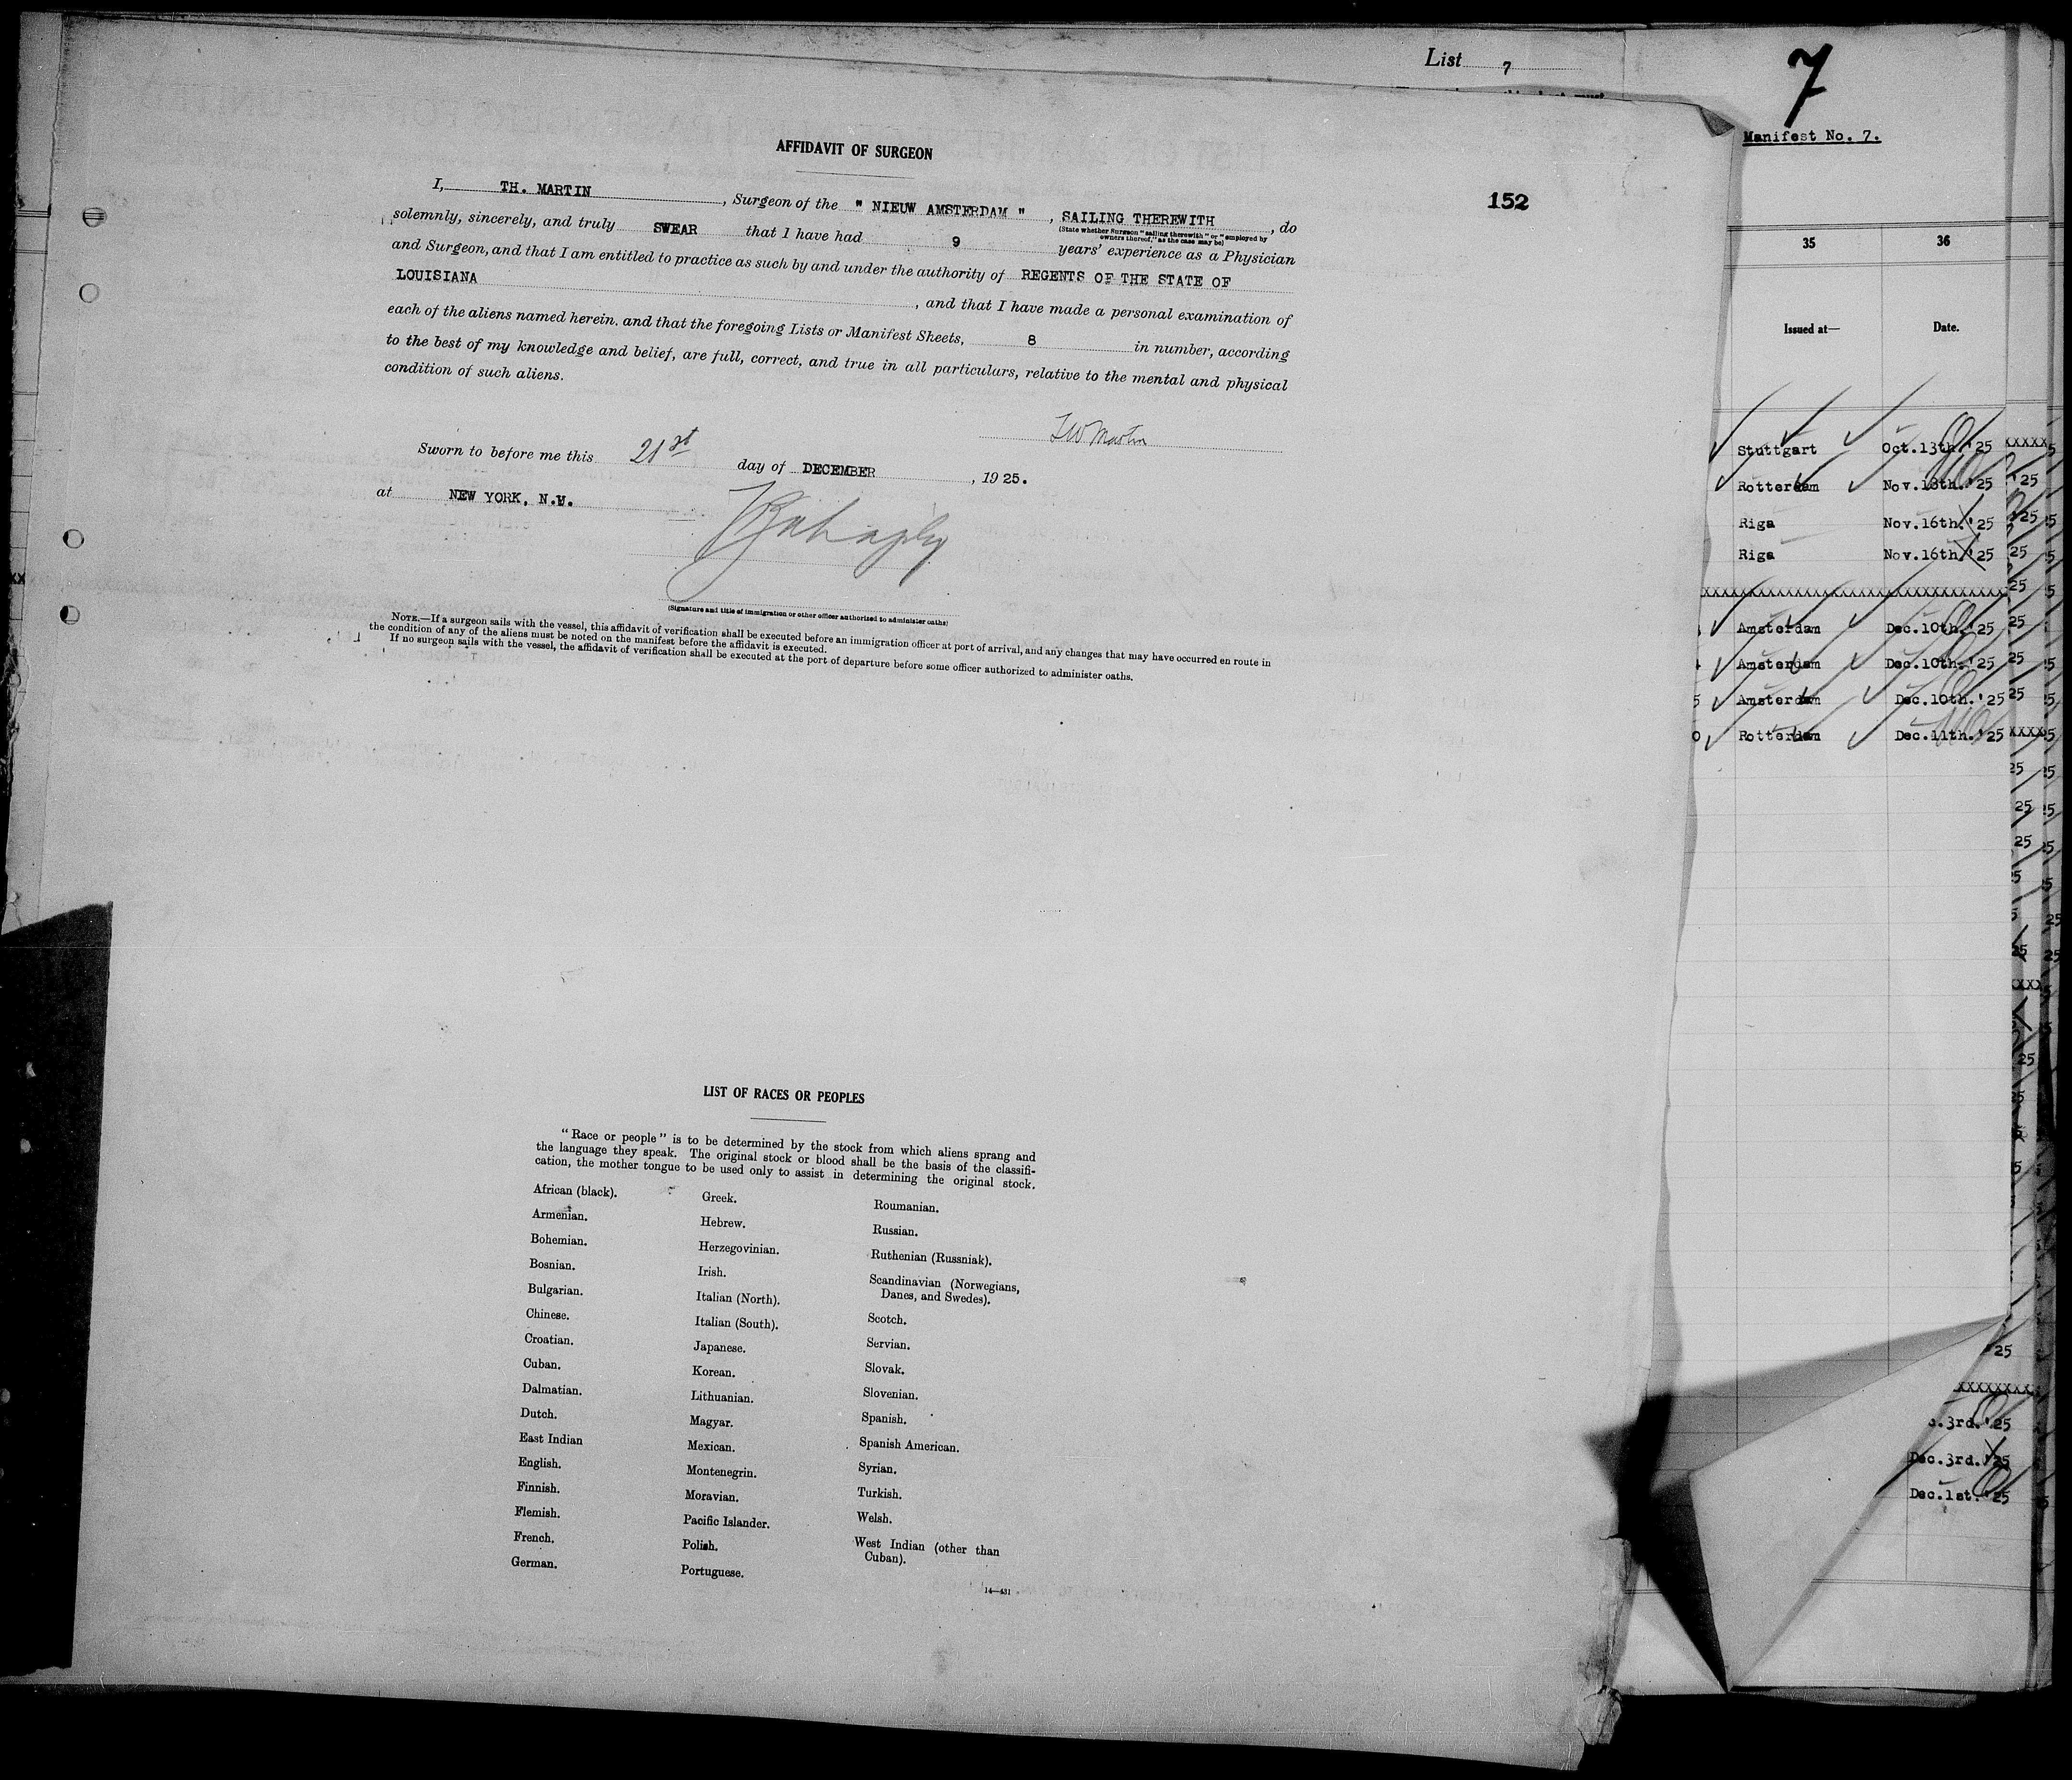 List 7
7
Manifest No. 7.
152
AFFIDAVIT OF SURGEON
I, TH. MARTIN, Surgeon of the " NIEUW AMSTERDAM ", SAILING THEREWITH, do
(State whether Surgeon "sailing therewith" or "employed by
owners thereof," as the case may be)
solemnly, sincerely, and truly SWEAR that I have had 9 years' experience as a Physician
and Surgeon, and that I am entitled to practice as such by and under the authority of REGENTS OF THE STATE OF
LOUISIANA, and that I have made a personal examination of
each of the aliens named herein, and that the foregoing Lists or Manifest Sheets, 8 in number, according
to the best of my knowledge and belief, are full, correct, and true in all particulars, relative to the mental and physical
condition of such aliens.
Martin
Sworn to before me this 21st day of DECEMBER, 1925.
at NEW YORK, N.Y.
(Signature and title of immigration or other officer authorized to administer oaths)
NOTE.—If a surgeon sails with the vessel, this affidavit of verification shall be executed before an immigration officer at port of arrival, and any changes that may have occurred en route in
the condition of any of the aliens must be noted on the manifest before the affidavit is executed.
If no surgeon sails with the vessel, the affidavit of verification shall be executed at the port of departure before some officer authorized to administer oaths.
LIST OF RACES OR PEOPLES
"Race or people" is to be determined by the stock from which aliens sprang and
the language they speak. The original stock or blood shall be the basis of the classifi-
cation, the mother tongue to be used only to assist in determining the original stock.
African (black).
Armenian.
Bohemian.
Bosnian.
Bulgarian.
Chinese.
Croatian.
Cuban.
Dalmatian.
Dutch.
East Indian
English.
Finnish.
Flemish.
French.
German.
Greek.
Hebrew.
Herzegovinian.
Irish.
Italian (North).
Italian (South).
Japanese.
Korean.
Lithuanian.
Magyar.
Mexican.
Montenegrin.
Moravian.
Pacific Islander.
Polish.
Portuguese.
Roumanian.
Russian.
Ruthenian (Russniak).
Scandinavian (Norwegians,
Danes, and Swedes).
Scotch.
Servian.
Slovak.
Slovenian.
Spanish.
Spanish American.
Syrian.
Turkish.
Welsh.
West Indian (other than
Cuban).
14—431
35 36
Issued at— Date.
Stuttgart Oct.13th.'25
Rotterdam Nov.18th.'25
Riga Nov.16th.'25
Riga Nov.16th.'25
Amsterdam Dec.10th.'25
Amsterdam Dec.10th.'25
Amsterdam Dec.10th.'25
Rotterdam Dec.11th.'25
'25
.3rd.'25
Dec.3rd.'25
Dec.1st.'25